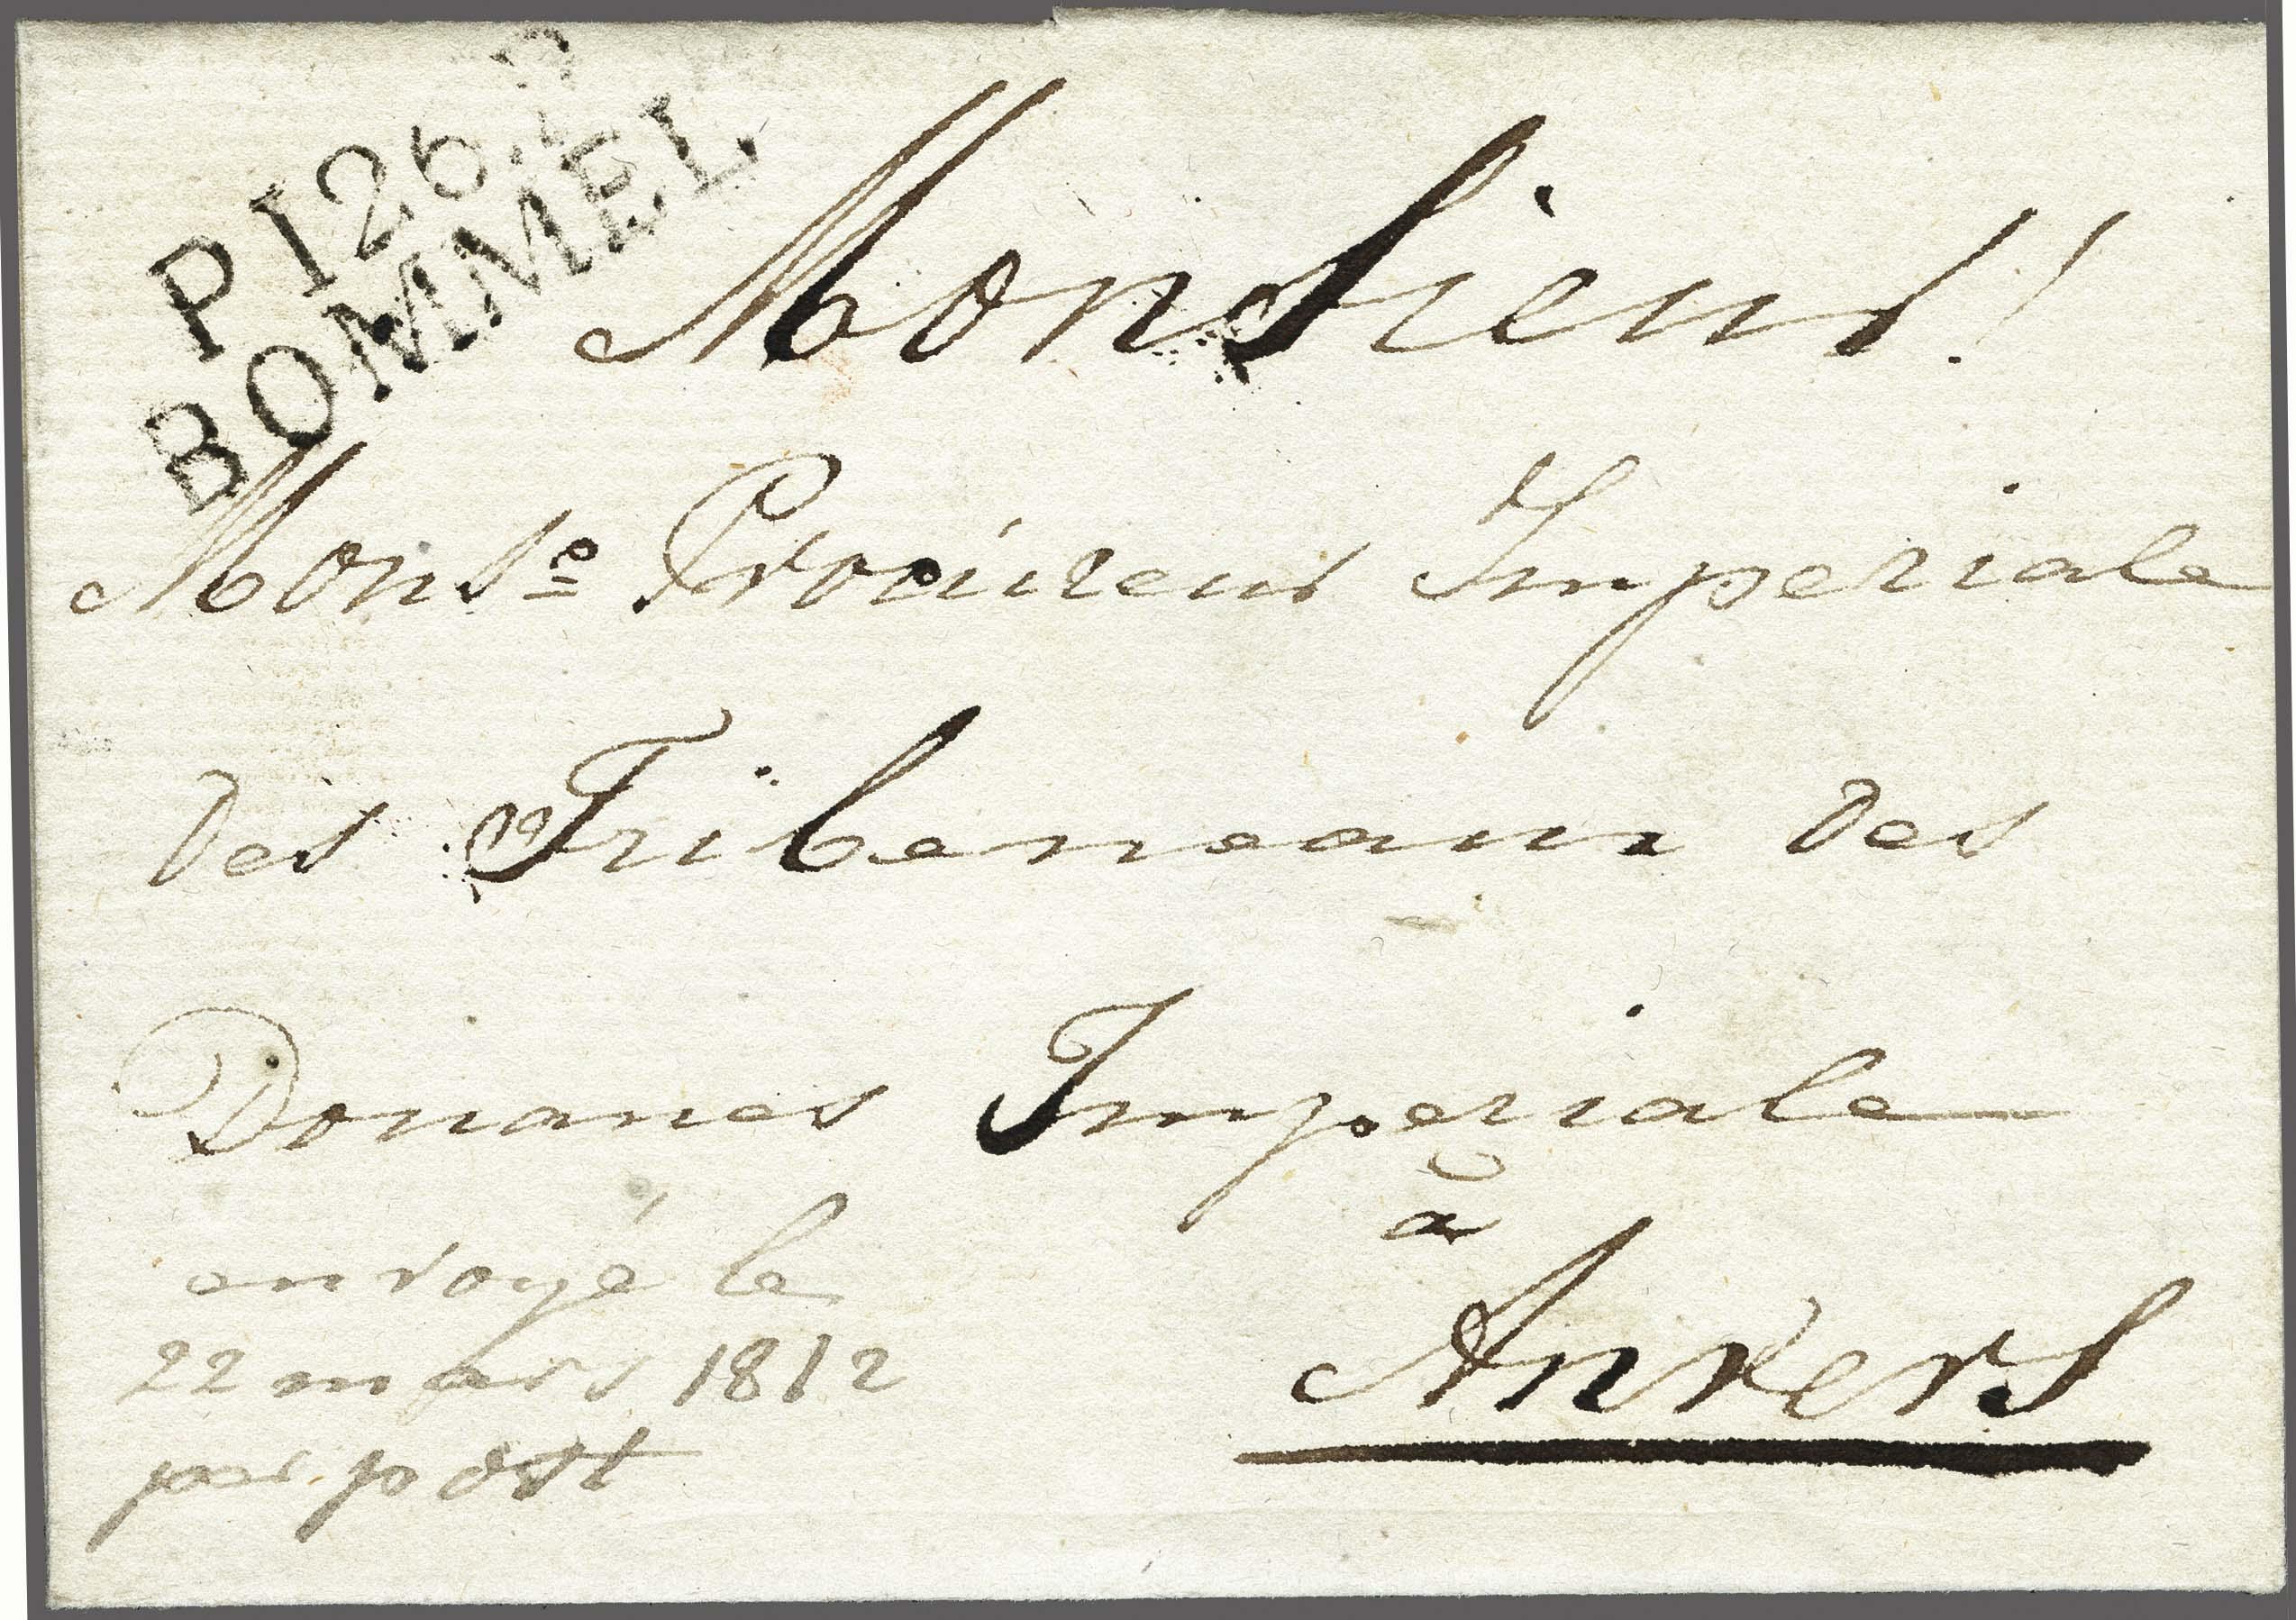 P 126. P
BOMMEL
Monsieur!
Monsr Procureur Imperiale
des Tribeneaux des
Douanes Imperiale
à
Anvers
envoyé le
22 mars 1812
par post